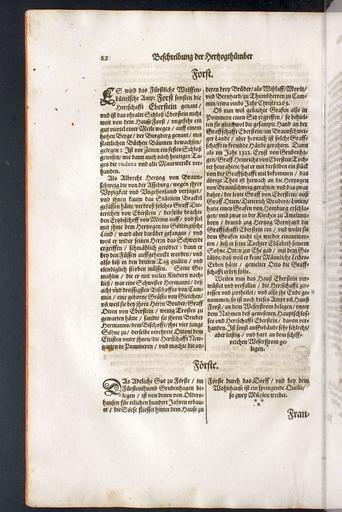 82
Beschreibung der Hertzogthümber
Forst.
ES wird das Fürstliche Wolffen-
büttelsche Ampt Forst sonsten die
Herrschafft Eberstein genant /
und ist das uhralte Schloß Eberstein nicht
weit von dem Hause Forst / ungefehr ein
gut viertel einer Meile weges / auff einem
hohen Berge / der Burgberg genant / mit
stattlichen Büchen Bäumen bewachsen /
gelegen : Ist vor zeiten ein festes Schloß
gewesen / wie dann auch noch heutiges Ta-
ges die rudera und alte Maurwerck vor-
handen.
Als Albrecht Hertzog von Braun-
schweig die von der Asseburg / wegen ihrer
und ihnen kaum das
gelassen hätte / verdroß solches Graff Die-
terichen von Eberstein / derselbe brachte
den Ertzbischoff von Meintz auff / und fiel
mit ihme dem Hertzogen ins Göttingische
Land / ward aber darüber gefangen / und
weil er wider seinen Herrn das Schwerdt
ergriffen / schmählich getödtet : dann er
bey den Füssen auffgehenckt worden / und
also biß in den dritten Tag quälen / und
elendiglich sterben müssen. Seine Ge-
mahlin / die er mit vielen Kindern nach-
ließ / war eine Schwester Hermanni / des
acht und dreissigsten Bischoffen von Cam-
min / eine geborne Gräfin von Gleichen:
und weil sie bey ihren Herrn Bruder / Graff
Otten von Eberstein / wenig Trostes zu
gewarten hätte / sandte sie ihrem Bruder
Hermanno / dem Bischoffe / ihre vier junge
Söhne zu / derselbe verehrete Ottoni dem
Eltesten unter ihnen / die Herrschafft Neu-
garten in Pommern / und machte die an-
deren drey Brüder / als Wißlaff / Moritz /
und Bernhard / zu Thumherren zu Cam-
min / etwa umbs Jahr Christi 1263.
Ob nun wol gedachte Grafen also in
Pommern einen Sitz ergriffen / so behiel-
ten sie gleichwol die gesampte Hand an der
Graffschafft Eberstein / im Braunschwei-
ger Lande / aber hernach ist solche Graff-
schafft in frembde Hände gerahten. Dann
als im Jahr 1322. Ernst von Grubenha-
gen / Graff Heinrichs von Eberstein Toch-
ter geheyrahtet / hat er mit derselben ein stück
von der Graffschafft mit bekommen / das
übrige Theil ist hernach an die Hertzogen
von Braunschweig gerahten / und das zwar
daher / der letzte Graff von Eberstein / auch
Graff Otto / Dieterich Bruder Enckeln /
welcher die Hertzog Bernhard
Graffschafft Eberstein ein / und weil sie
dem Grafen nicht ehe wieder einantwor-
ten / biß er seine Tochter Elisabeth seinem
Sohne Otten zur Ehe gab / und weil sein
Bruder / und er keine Männliche Leibes-
Erben hätte / gemelter Otto die Graff-
schafft erben solte.
Weilen nun das Hauß Eberstein ver-
wüstet und verfallen / die Herrschafft de-
 und zertheilet / und also ihr Ende ge-
nommen / so ist noch dieses Ampt und Hauß
Forst / an dem Weserstrom belegen / unter
dem Nahmen des gewesenen Hauptschloß
und Herrschafft Eberstein / davon vor-
handen. Ist sonst am Gebäude sehr schlecht /
aber lustig / und hart an dem schiff-
reichen Weserstrom ge-
legen.
Förste.
DAs Adeliche Gut zu Förste / im
Fürstenthumb Grubenhagen be-
legen / ist von denen von Olders-
hausen für etlichen hundert Jahren erbau-
et / die Söese fliesset hinter dem Hause zu
Förste durch das Dorff / und bey dem
Wohnhause ist ein springende Quelle /
so zwey Mühlen treibet.
Fran-